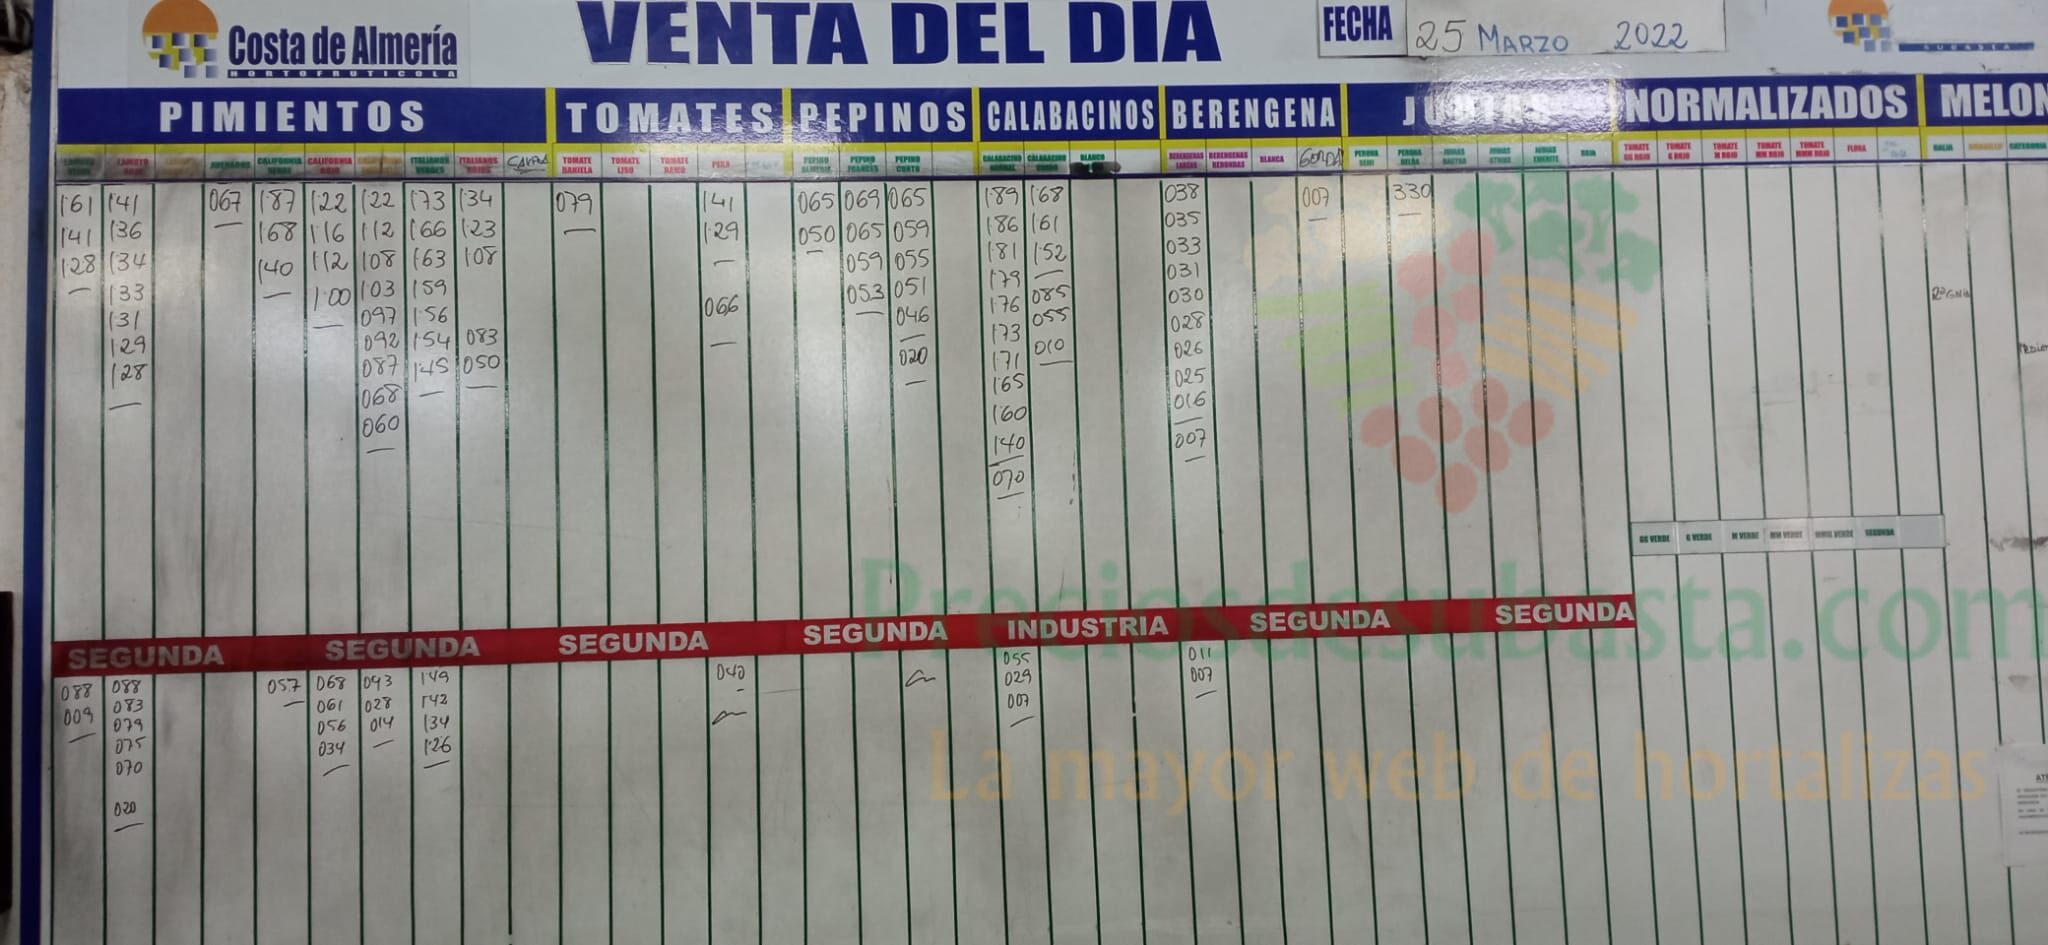 Costa de Almería
HORTOFRUTICOLA
VENTA DEL DIA
FECHA 25 MARZO 2022
SUBASTA
PIMIENTOS TOMATES PEPINOS CALABACINOS BERENGENA JUDIAS NORMALIZADOS MELON
LAMUYO ROJO CALIFORNIA VERDE CALIFORNIA ROJO ITALIANOS VERDES ITALIANOS ROJOS TOMATE DANIELA TOMATE LISO TOMATE RAMO PERA PEPINO ALMERIA PEPINO FRANCES PEPINO CORTO CALABACINO NORMAL CALABACINO GORDO BLANCO BERENGENAS LARGAS BERENGENAS REDONDAS BLANCA GORDA PERONA SEMI PERONA HELDA ROJA TOMATE GG ROJO TOMATE G ROJO TOMATE M ROJO TOMATE MM ROJO TOMATE MMM ROJO FLORA GALIA AMARILLO CATEGORIA
1'61 1'41 067 1'87 1'22 1'22 1'73 1'34 079 1'41 065 069 065 1'89 1'68 038 007 330
1'41 1'36 1'68 1'16 1'12 1'66 1'23 1'29 050 065 059 1'86 1'61 035
1'28 1'34 1'40 1'12 1'08 1'63 1'08 059 055 1'81 1'52 033
1'33 1'00 103 1'59 066 053 051 1'79 085 031
1'31 097 1'56 046 1'76 055 030
1'29 092 1'54 083 020 1'73 010 028
1'28 087 1'45 050 1'71 026
068 1'65 025
060 1'60 016
1'40 007
070
GG VERDE G VERDE M VERDE MM VERDE MMM VERDE SEGUNDA
SEGUNDA SEGUNDA SEGUNDA SEGUNDA INDUSTRIA SEGUNDA SEGUNDA
088 088 057 068 043 1'49 040 055 011
009 083 061 028 1'42 029 007
079 056 014 1'34 007
075 034 1'26
070
020
Preciosdesubasta.com
La mayor web de hortalizas